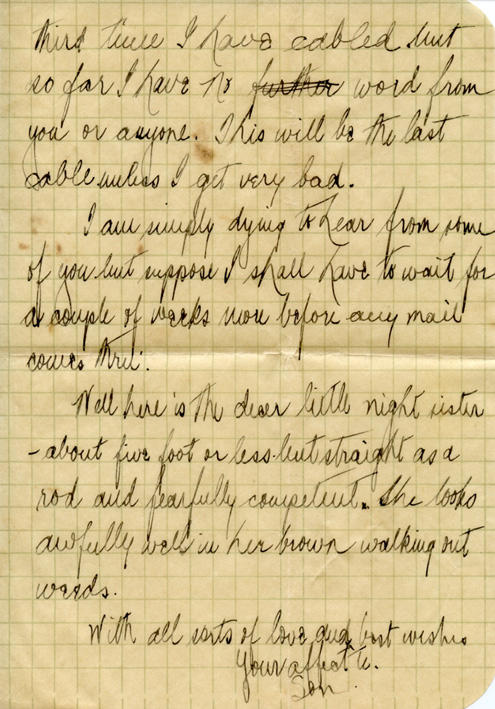 third time I have cabled but
so far I have no further word from
you or anyone. This will be the last
cable unless I get very bad.
I am simply dying to hear from some
of you but suppose I shall have to wait for
a couple of weeks more before any mail
comes thru'.
Well here is the dear little night sister
- about five foot or less but straight as a
rod and fearfully competent. She looks
awfully well in her brown walking out
weeds.
With all sorts of love and best wishes
Your affect'te.
Son.